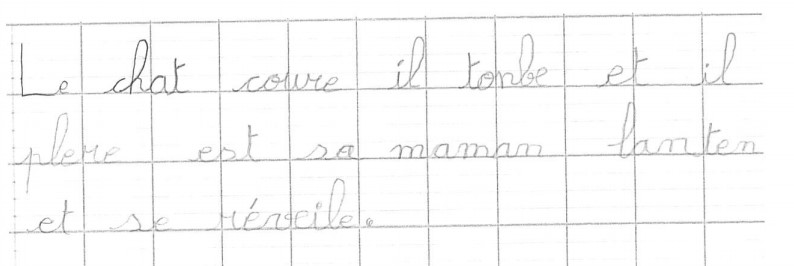 Le chat coure il tonbe et il
plere est sa maman lanten
et se réveile.